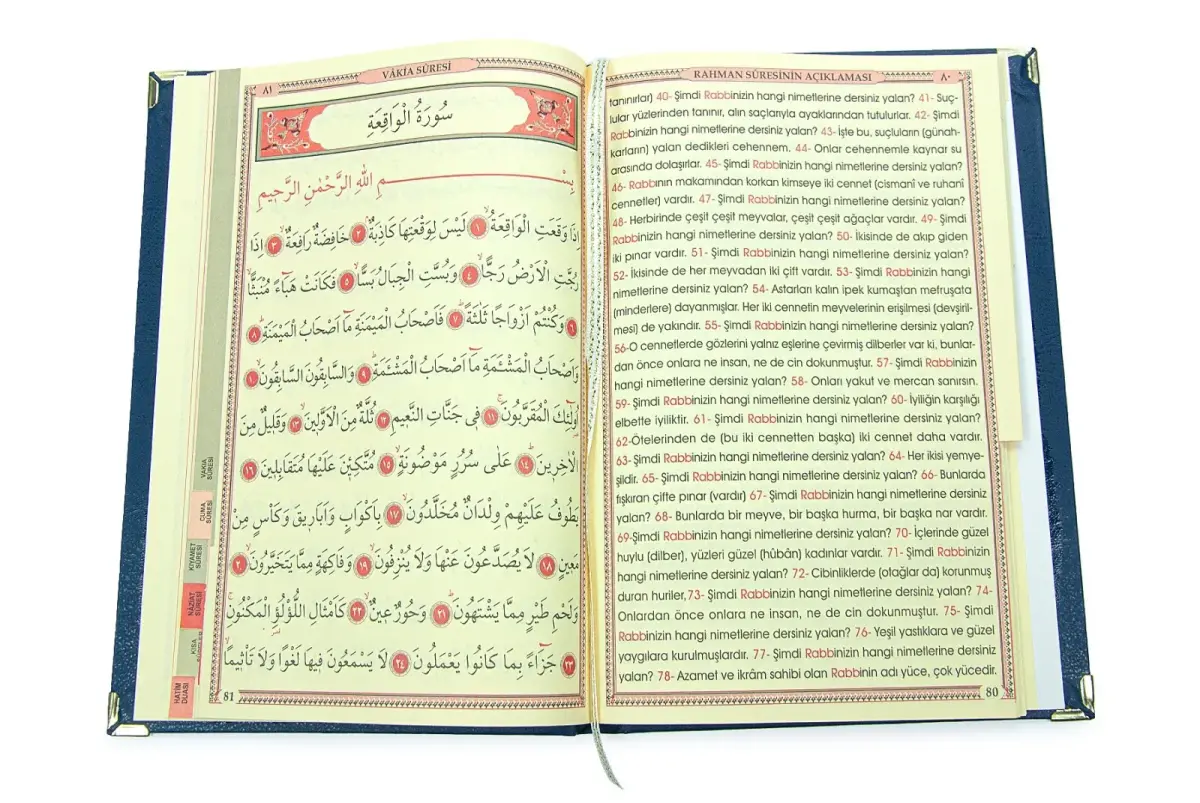 RAHMAN SÛRESİNİN AÇIKLAMASI
٨٠
tanınırlar) 40- Şimdi Rabbinizin hangi nimetlerine dersiniz yalan? 41- Suç-
lular yüzlerinden tanınır, alın saçlarıyla ayaklarından tutulurlar. 42- Şimdi
Rabbinizin hangi nimetlerine dersiniz yalan? 43- İşte bu, suçluların (günah-
karların) yalan dedikleri cehennem. 44- Onlar cehennemle kaynar su
arasında dolaşırlar. 45- Şimdi Rabbinizin hangi nimetlerine dersiniz yalan?
46- Rabbının makamından korkan kimseye iki cennet (cismanî ve ruhanî
cennetler) vardır. 47- Şimdi Rabbinizin hangi nimetlerine dersiniz yalan?
48- Herbirinde çeşit çeşit meyvalar, çeşit çeşit ağaçlar vardır. 49- Şimdi
Rabbinizin hangi nimetlerine dersiniz yalan? 50- İkisinde de akıp giden
iki pınar vardır. 51- Şimdi Rabbinizin hangi nimetlerine dersiniz yalan?
52- İkisinde de her meyvadan iki çift vardır. 53- Şimdi Rabbinizin hangi
nimetlerine dersiniz yalan? 54- Astarları kalın ipek kumaştan mefruşata
(minderlere) dayanmışlar. Her iki cennetin meyvelerinin erişilmesi (devşiril-
mesi) de yakındır. 55- Şimdi Rabbinizin hangi nimetlerine dersiniz yalan?
56-O cennetlerde gözlerini yalnız eşlerine çevirmiş dilberler var ki, bunlar-
dan önce onlara ne insan, ne de cin dokunmuştur. 57- Şimdi Rabbinizin
hangi nimetlerine dersiniz yalan? 58- Onları yakut ve mercan sanırsın.
59- Şimdi Rabbinizin hangi nimetlerine dersiniz yalan? 60- İyiliğin karşılığı
elbette iyiliktir. 61- Şimdi Rabbinizin hangi nimetlerine dersiniz yalan?
62-Ötelerinden de (bu iki cennetten başka) iki cennet daha vardır.
63- Şimdi Rabbinizin hangi nimetlerine dersiniz yalan? 64- Her ikisi yemye-
şildir. 65- Şimdi Rabbinizin hangi nimetlerine dersiniz yalan? 66- Bunlarda
fışkıran çifte pınar (vardır) 67- Şimdi Rabbinizin hangi nimetlerine dersiniz
yalan? 68- Bunlarda bir meyve, bir başka hurma, bir başka nar vardır.
69-Şimdi Rabbinizin hangi nimetlerine dersiniz yalan? 70- İçlerinde güzel
huylu (dilber), yüzleri güzel (hûbân) kadınlar vardır. 71- Şimdi Rabbinizin
hangi nimetlerine dersiniz yalan? 72- Cibinliklerde (otağlar da) korunmuş
duran huriler,73- Şimdi Rabbinizin hangi nimetlerine dersiniz yalan? 74-
Onlardan önce onlara ne insan, ne de cin dokunmuştur. 75- Şimdi
Rabbinizin hangi nimetlerine dersiniz yalan? 76- Yeşil yastıklara ve güzel
yaygılara kurulmuşlardır. 77- Şimdi Rabbinizin hangi nimetlerine dersiniz
yalan? 78- Azamet ve ikrâm sahibi olan Rabbinin adı yüce, çok yücedir.
80
VÂKİA SÛRESİ
٨١
سُورَةُ الْوَاقِعَةِ
بِسْمِ اللّٰهِ الرَّحْمٰنِ الرَّحٖيمِ
اِذَا وَقَعَتِ الْوَاقِعَةُۙ ١ لَيْسَ لِوَقْعَتِهَا كَاذِبَةٌۢ ٢ خَافِضَةٌ رَافِعَةٌۙ ٣ اِذَا
رُجَّتِ الْاَرْضُ رَجًّاۙ ٤ وَبُسَّتِ الْجِبَالُ بَسًّاۙ ٥ فَكَانَتْ هَبَٓاءً مُنْبَثًّاۙ
٦ وَكُنْتُمْ اَزْوَاجًا ثَلٰثَةًؕ ٧ فَاَصْحَابُ الْمَيْمَنَةِ مَٓا اَصْحَابُ الْمَيْمَنَةِؕ ٨
وَاَصْحَابُ الْمَشْـَٔمَةِ مَٓا اَصْحَابُ الْمَشْـَٔمَةِؕ ٩ وَالسَّابِقُونَ السَّابِقُونَۙ ١٠
اُولٰٓئِكَ الْمُقَرَّبُونَۚ ١١ فٖي جَنَّاتِ النَّعٖيمِ ١٢ ثُلَّةٌ مِنَ الْاَوَّلٖينَۙ ١٣ وَقَلٖيلٌ مِنَ
الْاٰخِرٖينَؕ ١٤ عَلٰى سُرُرٍ مَوْضُونَةٍۙ ١٥ مُتَّكِـٖٔينَ عَلَيْهَا مُتَقَابِلٖينَ ١٦
يَطُوفُ عَلَيْهِمْ وِلْدَانٌ مُخَلَّدُونَۙ ١٧ بِاَكْوَابٍ وَاَبَارٖيقَ وَكَأْسٍ مِنْ
مَعٖينٍۙ ١٨ لَا يُصَدَّعُونَ عَنْهَا وَلَا يُنْزِفُونَۙ ١٩ وَفَاكِهَةٍ مِمَّا يَتَخَيَّرُونَۙ ٢٠
وَلَحْمِ طَيْرٍ مِمَّا يَشْتَهُونَؕ ٢١ وَحُورٌ عٖينٌۙ ٢٢ كَاَمْثَالِ اللُّؤْلُؤِ الْمَكْنُونِۚ
٢٣ جَزَٓاءً بِمَا كَانُوا يَعْمَلُونَ ٢٤ لَا يَسْمَعُونَ فٖيهَا لَغْوًا وَلَا تَأْثٖيمًاۙ
81
VAKIA
SÛRESİ
CUMA
SÛRESİ
KIYAMET
SÛRESİ
NÂZİAT
SÛRESİ
KISA
HATİM
DUASI